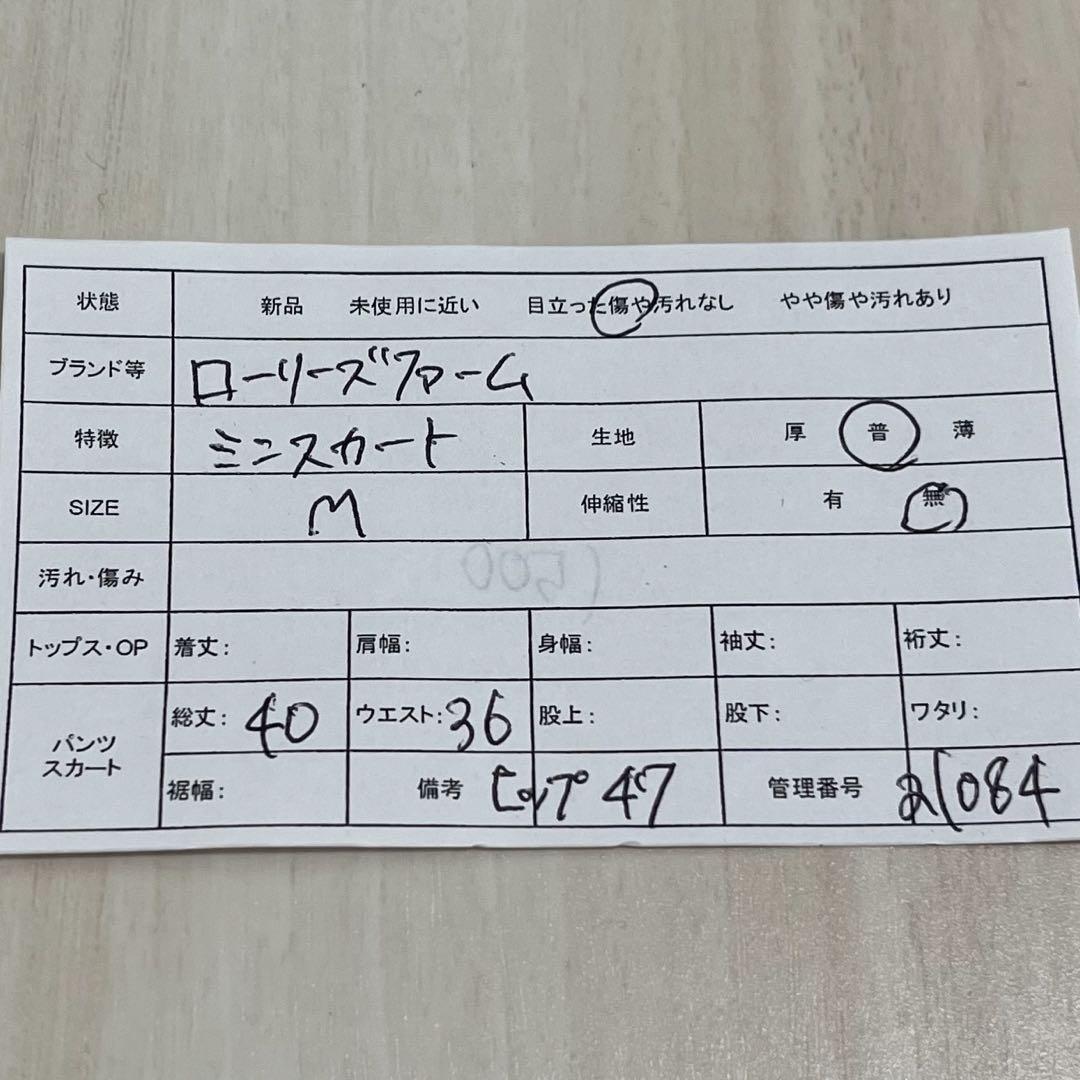 状態 新品 未使用に近い 目立った傷や汚れなし やや傷や汚れあり
ブランド等 ローリーズファーム
特徴 ミニスカート 生地 厚 普 薄
SIZE M 伸縮性 有 無
汚れ・傷み
トップス・OP 着丈: 肩幅: 身幅: 袖丈: 裄丈:
パンツ スカート 総丈: 40 ウエスト: 36 股上: 股下: ワタリ:
裾幅: 備考 ヒップ 47 管理番号 1084